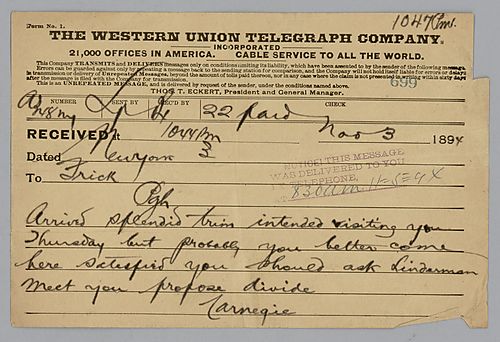 Form No. 1.
1047Pm.
THE WESTERN UNION TELEGRAPH COMPANY.
INCORPORATED
21,000 OFFICES IN AMERICA. CABLE SERVICE TO ALL THE WORLD.
This Company TRANSMITS and DELIVERS messages only on conditions limiting its liability, which have been assented to by the sender of the following message.
Errors can be guarded against only by repeating a message back to the sending station for comparison, and the Company will not hold itself liable for errors or delays
in transmission or delivery of Unrepeated Messages, beyond the amount of tolls paid thereon, nor in any case where the claim is not presented in writing within 60 days
after the message is filed with the Company for transmission.
This is an UNREPEATED MESSAGE, and is delivered by request of the sender, under the conditions named above.
THOS. T. ECKERT, President and General Manager.
699
NUMBER SENT BY REC'D BY CHECK
22 Paid
RECEIVED at 1044Pm Nov 3 1894
Dated New York 3
NOTICE! THIS MESSAGE
WAS DELIVERED TO YOU
TELEPHONE,
To Frick
AT 830am 11-5-94
Pgh
Arrived splendid trim intended visiting you
Thursday but probably you better come
here satisfied you should ask Linderman
meet you propose divide
Carnegie